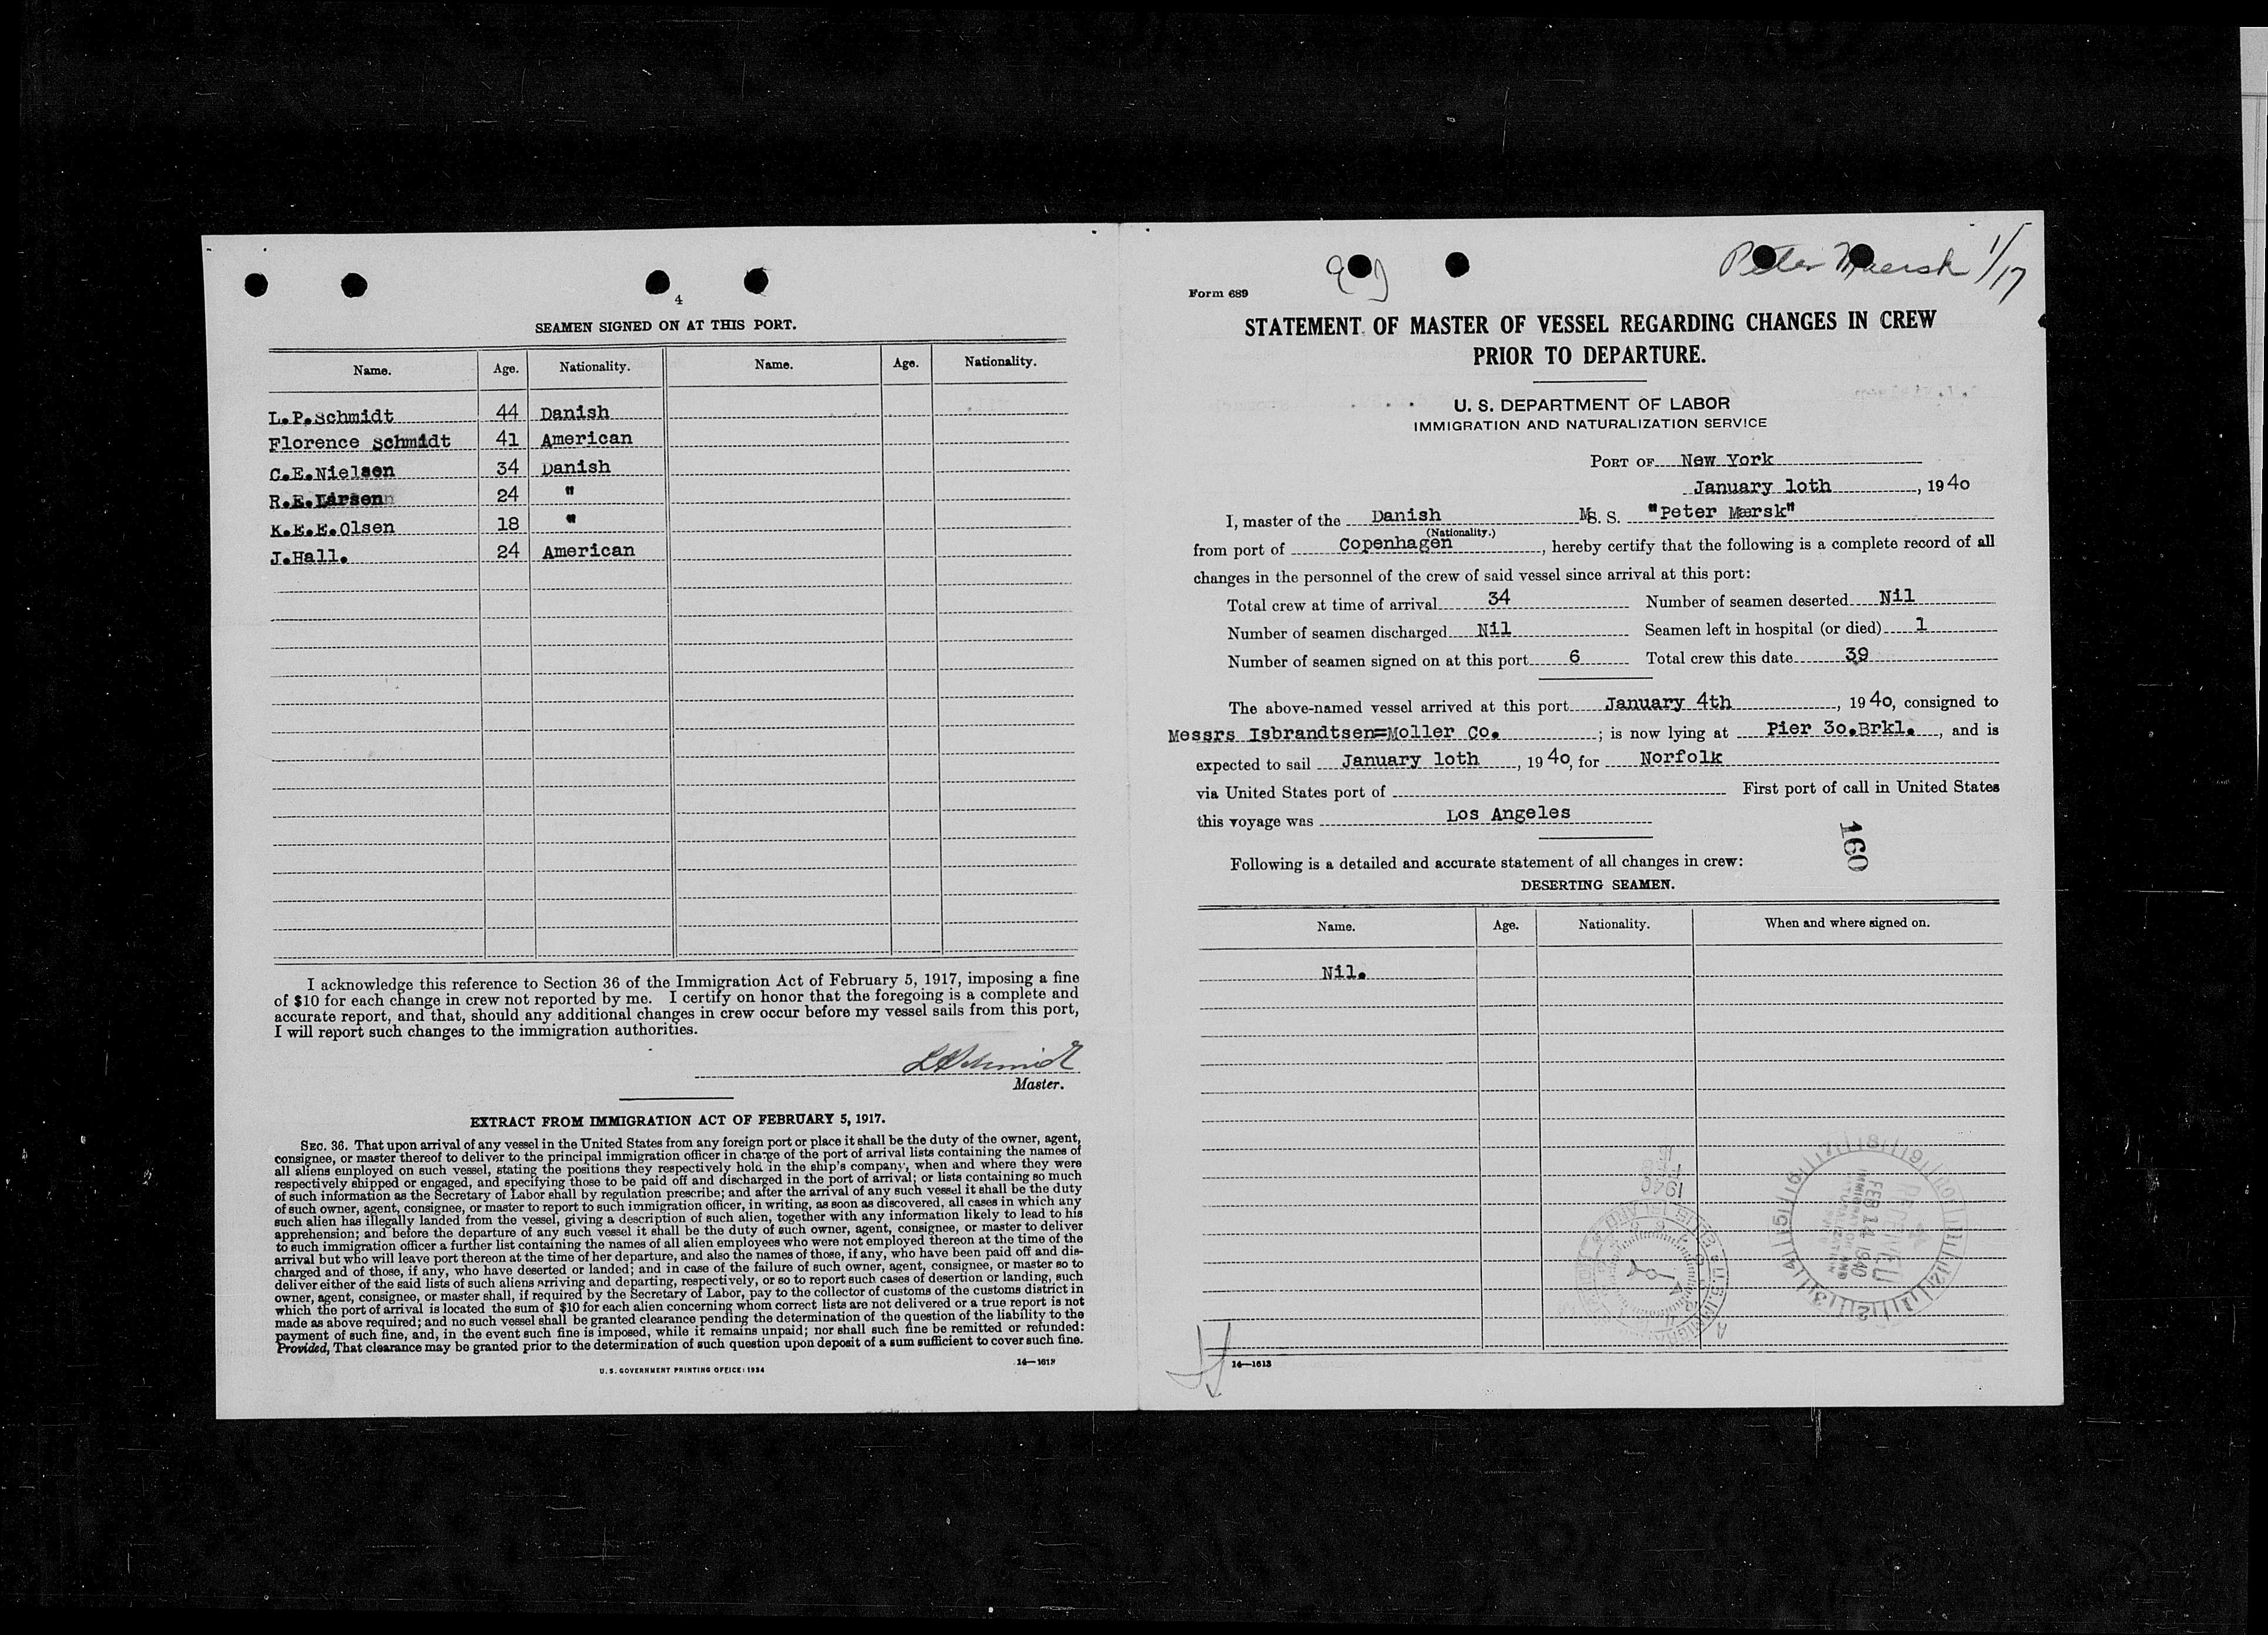 4
SEAMEN SIGNED ON AT THIS PORT.
Name. Age. Nationality. Name. Age. Nationality.
L.P.Schmidt 44 Danish
Florence Schmidt 41 American
C.E.Nielsen 34 Danish
R.E.Larsen 24 "
K.E.E.Olsen 18 "
J.Hall. 24 American
I acknowledge this reference to Section 36 of the Immigration Act of February 5, 1917, imposing a fine
of $10 for each change in crew not reported by me. I certify on honor that the foregoing is a complete and
accurate report, and that, should any additional changes in crew occur before my vessel sails from this port,
I will report such changes to the immigration authorities.
LPSchmidt
Master.
EXTRACT FROM IMMIGRATION ACT OF FEBRUARY 5, 1917.
SEC. 36. That upon arrival of any vessel in the United States from any foreign port or place it shall be the duty of the owner, agent,
consignee, or master thereof to deliver to the principal immigration officer in charge of the port of arrival lists containing the names of
all aliens employed on such vessel, stating the positions they respectively hold in the ship's company, when and where they were
respectively shipped or engaged, and specifying those to be paid off and discharged in the port of arrival; or lists containing so much
of such information as the Secretary of Labor shall by regulation prescribe; and after the arrival of any such vessel it shall be the duty
of such owner, agent, consignee, or master to report to such immigration officer, in writing, as soon as discovered, all cases in which any
such alien has illegally landed from the vessel, giving a description of such alien, together with any information likely to lead to his
apprehension; and before the departure of any such vessel it shall be the duty of such owner, agent, consignee, or master to deliver
to such immigration officer a further list containing the names of all alien employees who were not employed thereon at the time of the
arrival but who will leave port thereon at the time of her departure, and also the names of those, if any, who have been paid off and dis-
charged and of those, if any, who have deserted or landed; and in case of the failure of such owner, agent, consignee, or master so to
deliver either of the said lists of such aliens arriving and departing, respectively, or so to report such cases of desertion or landing, such
owner, agent, consignee, or master shall, if required by the Secretary of Labor, pay to the collector of customs of the customs district in
which the port of arrival is located the sum of $10 for each alien concerning whom correct lists are not delivered or a true report is not
made as above required; and no such vessel shall be granted clearance pending the determination of the question of the liability to the
payment of such fine, and, in the event such fine is imposed, while it remains unpaid; nor shall such fine be remitted or refunded:
Provided, That clearance may be granted prior to the determination of such question upon deposit of a sum sufficient to cover such fine.
U. S. GOVERNMENT PRINTING OFFICE: 1934 14—1613
Peter Maersk 1/17
Form 689
STATEMENT OF MASTER OF VESSEL REGARDING CHANGES IN CREW
PRIOR TO DEPARTURE.
U. S. DEPARTMENT OF LABOR
IMMIGRATION AND NATURALIZATION SERVICE
PORT OF New York
January 1oth, 194o
I, master of the Danish MS. S. "Peter Mærsk"
(Nationality.)
from port of Copenhagen, hereby certify that the following is a complete record of all
changes in the personnel of the crew of said vessel since arrival at this port:
Total crew at time of arrival 34 Number of seamen deserted Nil
Number of seamen discharged Nil Seamen left in hospital (or died) 1
Number of seamen signed on at this port 6 Total crew this date 39
The above-named vessel arrived at this port January 4th, 194o, consigned to
Messrs Isbrandtsen=Moller Co. ; is now lying at Pier 3o.Brkl., and is
expected to sail January 1oth, 194o, for Norfolk
via United States port of First port of call in United States
this voyage was Los Angeles
160
Following is a detailed and accurate statement of all changes in crew:
DESERTING SEAMEN.
Name. Age. Nationality. When and where signed on.
Nil.
FEB
1940
RECEIVED
FEB 14 1940
14—1613